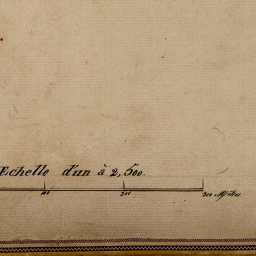 Echelle d'un à 2,500.
100 200 300 Mètres